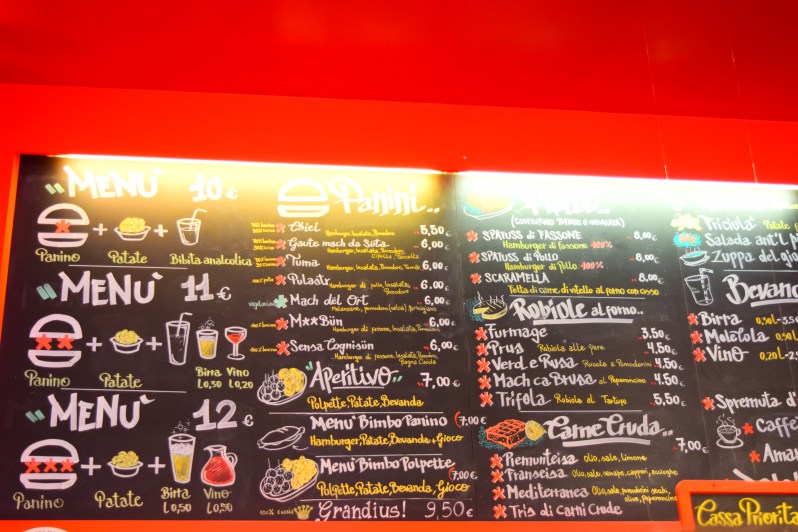 "MENU' 10 €
Panino + Patate + Bibita analcolica
"MENU' 11 €
Panino + Patate + Birra 0,50 Vino 0,20
"MENU' 12 €
Panino + Patate + Birra 0,50 Vino 0,50
Panini..
Chiel 5,50
Hamburger, Insalata, Pomodoro
Gauto mach da Suta 6,00
Hamburger, Insalata, Pomodoro
Cipolla, Senape
Tuma 6,00
Hamburger, Insalata, Pomodoro, Formaggio
Pulastr 6,00
Hamburger di pollo, Insalata, Pomodoro
Mach del Ort 6,00
M**Bün 6,00
Hamburger di fassone, Insalata, Pomodoro
Sensa Cognisün 6,00
Hamburger di fassone, Insalata, Pomodoro,
Bagna Cauda
"Aperitivo" 7,00 €
Polpette, Patate, Bevanda
Menu' Bimbo Panino (7,00 €
Hamburger, Patate, Bevanda + Gioco
Menu' Bimbo Polpette (7,00 €
Polpette, Patate, Bevanda, Gioco
Grandius! 9,50 €
(CONTORNO PATATE O INSALATA)
SPATUSS di FASSONE 8,00 €
Hamburger di fassone 100%
SPATUSS di POLLO 8,00 €
Hamburger di Pollo 100%
SCARAMELLA 8,00 €
Fetta di carne di vitello al forno con osso
Robiole al forno..
Furmage 3,50 €
Prus Robiola alle pere 4,50 €
Verd e Rusa Rucola e Pomodorini 4,50 €
Mach ca Brusa al Peperoncino 4,50 €
Trifola Robiola al Tartufo 5,50 €
Carne Cruda.. 7,00 €
Piemunteisa Olio, sale, limone
Franseisa Olio, sale, senape, capperi, acciughe
Mediterranea Olio, sale, pomodorini secchi,
olive, Peperoncino
Tris di Carni Crude
Triciula' Patate
Salada ant'l p
Zuppa del gio
Bevand
Birra 0,30 l
Moletola 0,50 l
Vino 0,20 l
Spremuta d'
Caffe'
Amar
Cassa Priorita